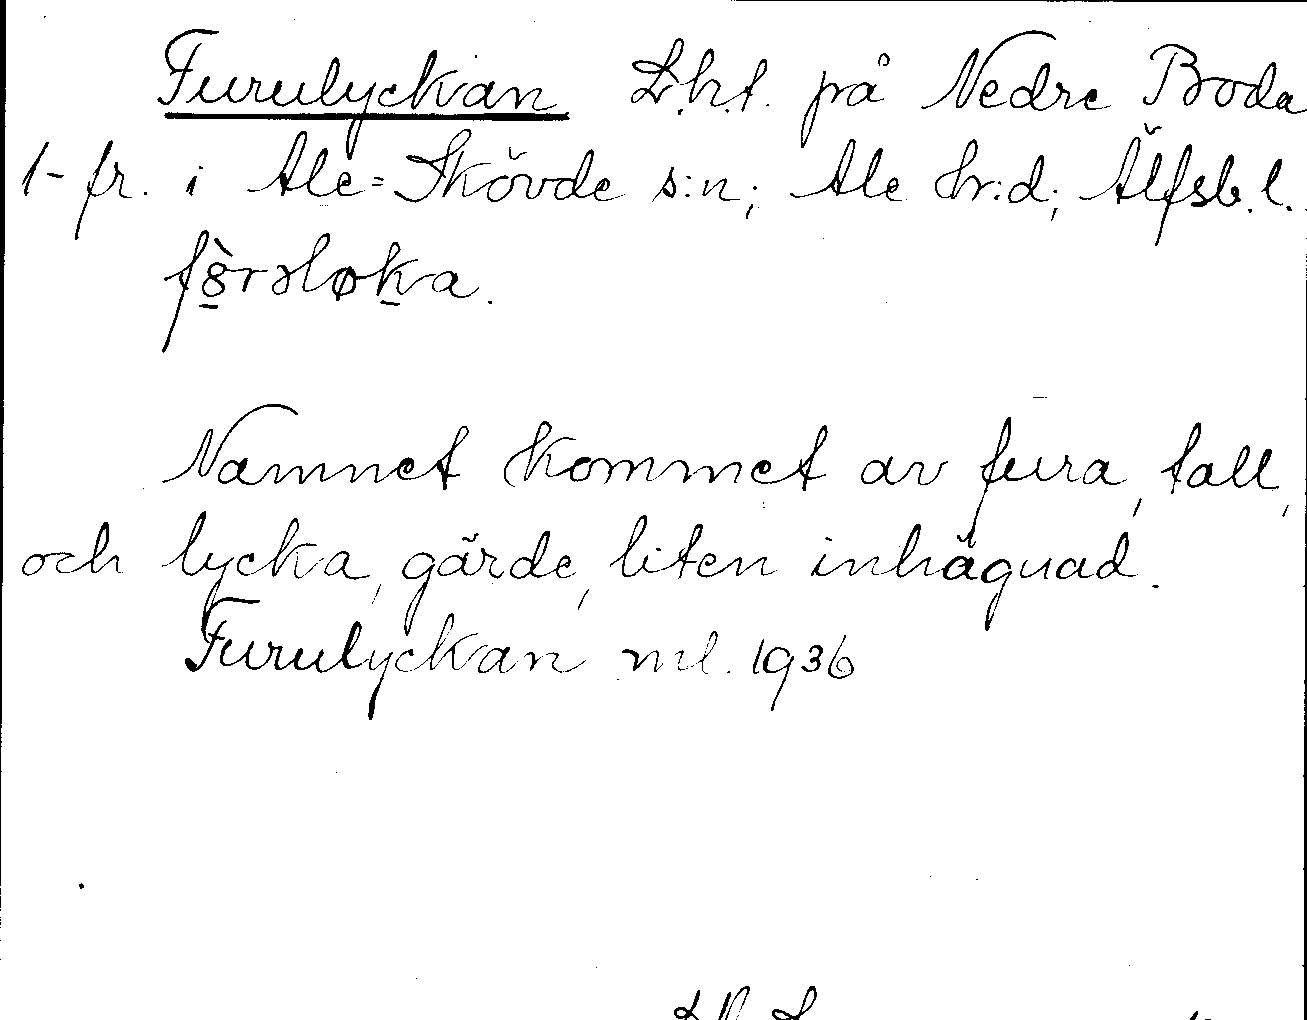 Furulyckan Lht. på Nedre Boda
1-fr. i Ale-Skövde s:n; Ale hr:d; Älfsb. l.
Namnet kommet av fura, tall,
och lycka, gärde, liten inhägnad.
Furulyckan ml. 1936